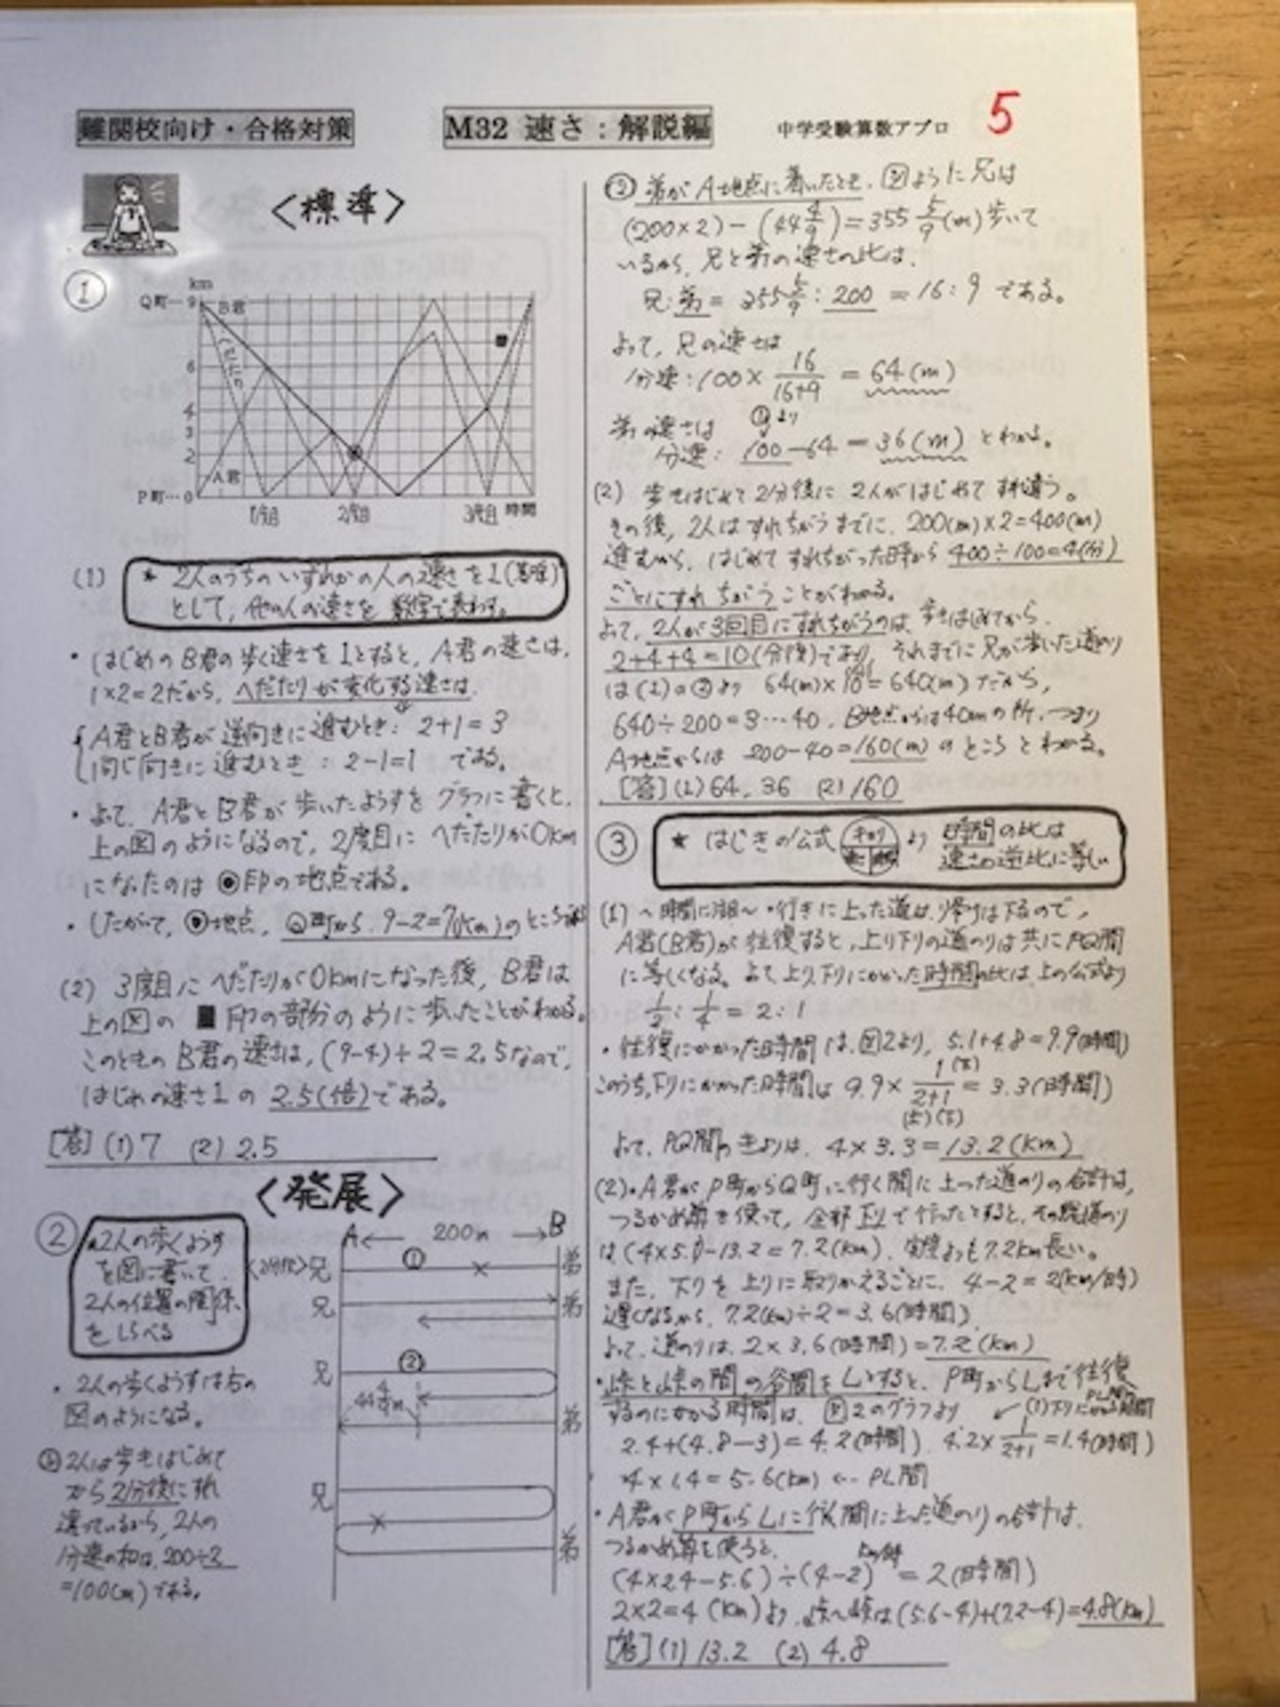 難関校向け・合格対策
M32 速さ：解説編
中学受験算数アプロ
5
〈標準〉
①
km
Q町…9
B君
へだたり
6
4
3
2
A君
P町…0
1度目
2度目
3度目
時間
(1)
★ 2人のうちのいずれかの人の速さを1(基準)
として, 他の人の速さを 数字で表わす。
・はじめのB君の歩く速さを1とすると, A君の速さは,
1×2=2だから, へだたりが変化する速さは
A君とB君が逆向きに進むとき: 2+1=3
同じ向きに進むとき : 2-1=1 である。
・よって, A君とB君が歩いたようすをグラフに書くと,
上の図のようになるので, 2度目にへだたりが0km
になったのは◉印の地点である。
・したがって, ◉地点, Q町から, 9-2=7(km)のところ
(2) 3度目にへだたりが0kmになった後, B君は
上の図の ■印の部分のように歩いたことがわかる。
このときのB君の速さは, (9-4)÷2=2.5なので,
はじめの速さ1の 2.5(倍)である。
[答] (1) 7 (2) 2.5
〈発展〉
②
★2人の歩くようす
を図に書いて,
2人の位置の関係
をしらべる
・2人の歩くようすは右の
図のようになる。
2人は歩きはじめて
から2分後にすれ
違っているから, 2人の
1分速の和は, 200÷2
=100(m)である。
A
200m
B
〈2分後〉兄
①
弟
兄
弟
兄
②
44 4/9 m
弟
兄
弟
② 弟がA地点に着いたとき, 図ように兄は
(200×2)-(44 4/9)=355 5/9(m)歩いて
いるから, 兄と弟の速さの比は,
兄:弟= 355 5/9 : 200 = 16:9 である。
よって, 兄の速さは
1分速:100× 16/16+9 = 64(m)
弟の速さは ①より
分速: 100-64 = 36(m) とわかる。
(2) 歩きはじめて2分後に2人がはじめてすれ違う。
その後, 2人はすれちがうまでに, 200(m)×2=400(m)
進むから, はじめてすれちがった時から 400÷100=4(分)
ごとにすれちがうことがわかる。
よって, 2人が3回目にすれちがうのは, 歩きはじめてから,
2+4+4=10(分後)であり, それまでに兄が歩いた道のり
は(1)の②より 64(m)×10=640(m)だから,
640÷200=3…40, B地点からは40mの所, つまり
A地点からは 200-40=160(m)のところとわかる。
[答] (1) 64, 36 (2) 160
③
★ はじきの公式
より 時間の比は
速さの逆比に等しい
(1) ・行きに上った道は, 帰りは下るので,
A君(B君)が往復すると, 上り下りの道のりは共にPQ間
に等しくなる。よって上り下りにかかった時間の比は上の公式より
1/2 : 1/4 = 2:1
・往復にかかった時間は, 図2より, 5.1+4.8=9.9(時間)
このうち, 下りにかかった時間は 9.9× 1/2+1 = 3.3(時間)
よって, PQ間のきょりは, 4×3.3=13.2(km)
(2)・A君がP町からQ町に行く間に上った道のりの合計は,
つるかめ算を使って, 全部下りで行ったとすると, その道のり
は(4×5.1)-13.2=7.2(km), 実際よりも7.2km長い。
また, 下りを上りに取りかえるごとに, 4-2=2(km/時)
遅くなるから, 7.2(km)÷2=3.6(時間)
よって, 道のりは, 2×3.6(時間)=7.2(km)
・峠と峠の間の谷間をLとすると, P町からLまで往復
するのにかかる時間は, 図2のグラフより
2.4+(4.8-3)=4.2(時間) 4.2× 1/2+1 =1.4(時間)
4×1.4=5.6(km) ← PL間
・A君がP町からLに行く間に上った道のりの合計は,
つるかめ算を使うと,
(4×2.4-5.6)÷(4-2) = 2(時間)
2×2=4(km)より, 峠〜峠は(5.6-4)+(7.2-4)=4.8(km)
[答] (1) 13.2 (2) 4.8